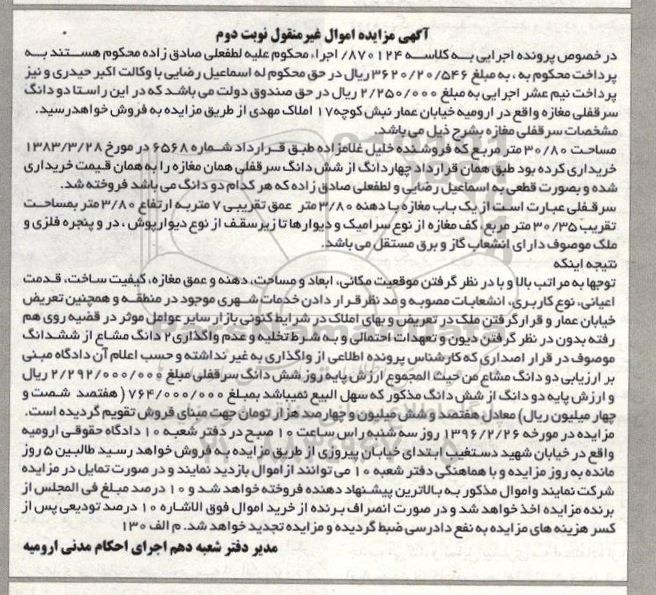 آگهی مزایده اموال غیرمنقول نوبت دوم
در خصوص پرونده اجرایی به کلاسه ۸۷۰۱۲۴/ اجراء محکوم علیه لطفعلی صادق زاده محکوم هستند به
پرداخت محکوم به ، به مبلغ ۳۶۲۰/۲۰/۵۴۶ ریال در حق محکوم له اسماعیل رضایی با وکالت اکبر حیدری و نیز
پرداخت نیم عشر اجرایی به مبلغ ۲/۲۵۰/۰۰۰ ریال در حق صندوق دولت می باشد که در این راستا دو دانگ
سرقفلی مغازه واقع در ارومیه خیابان عمار نبش کوچه ۱۷ املاک مهدی از طریق مزایده به فروش خواهد رسید.
مشخصات سرقفلی مغازه بشرح ذیل می باشد.
مساحت ۳۰/۸۰ متر مربع که فروشنده خلیل غلامزاده طبق قرارداد شماره ۶۵۶۸ در مورخ ۱۳۸۳/۳/۲۸
خریداری کرده بود طبق همان قرارداد چهاردانگ از شش دانگ سرقفلی همان مغازه را به همان قیمت خریداری
شده و بصورت قطعی به اسماعیل رضایی و لطفعلی صادق زاده که هر کدام دو دانگ می باشد فروخته شد.
سرقفلی عبارت است از یک باب مغازه با دهنه ۳/۸۰ متر عمق تقریبی ۷ متر به ارتفاع ۳/۸۰ متر بمساحت
تقریب ۳۰/۳۵ متر مربع، کف مغازه از نوع سرامیک و دیوارها تا زیر سقف از نوع دیوارپوش ، در و پنجره فلزی و
ملک موصوف دارای انشعاب گاز و برق مستقل می باشد.
نتیجه اینکه
توجها به مراتب بالا و با در نظر گرفتن موقعیت مکانی، ابعاد و مساحت، دهنه و عمق مغازه، کیفیت ساخت، قدمت
اعیانی، نوع کاربری، انشعابات مصوبه و مد نظر قرار دادن خدمات شهری موجود در منطقه و همچنین تعریض
خیابان عمار و قرار گرفتن ملک در تعریض و بهای املاک در شرایط کنونی بازار سایر عوامل موثر در قضیه روی هم
رفته بدون در نظر گرفتن دیون و تعهدات احتمالی و به شرط تخلیه و عدم واگذاری ۲ دانگ مشاع از ششدانگ
موصوف در قرار اصداری که کارشناس پرونده اطلاعی از واگذاری به غیر نداشته و حسب اعلام آن دادگاه مبنی
بر ارزیابی دو دانگ مشاع من حیث المجموع ارزش پایه روز شش دانگ سرقفلی مبلغ ۲/۲۹۲/۰۰۰/۰۰۰ ریال
و ارزش پایه دو دانگ از شش دانگ مذکور که سهل البیع نمیباشد بمبلغ ۷۶۴/۰۰۰/۰۰۰ ( هفتصد شصت و
چهار میلیون ریال) معادل هفتصد و شش میلیون و چهارصد هزار تومان جهت مبنای فروش تقویم گردیده است.
مزایده در مورخه ۱۳۹۶/۲/۲۶ روز سه شنبه راس ساعت ۱۰ صبح در دفتر شعبه ۱۰ دادگاه حقوقی ارومیه
واقع در خیابان شهید دستغیب ابتدای خیابان پیروزی از طریق مزایده به فروش خواهد رسید طالبین ۵ روز
مانده به روز مزایده و با هماهنگی دفتر شعبه ۱۰ می توانند از اموال بازدید نمایند و در صورت تمایل در مزایده
شرکت نمایند و اموال مذکور به بالاترین پیشنهاد دهنده فروخته خواهد شد و ۱۰ درصد مبلغ فی المجلس از
برنده مزایده اخذ خواهد شد و در صورت انصراف برنده از خرید اموال فوق الاشاره ۱۰ درصد تودیعی پس از
کسر هزینه های مزایده به نفع دادرسی ضبط گردیده و مزایده تجدید خواهد شد. م الف ۱۳۰
مدیر دفتر شعبه دهم اجرای احکام مدنی ارومیه